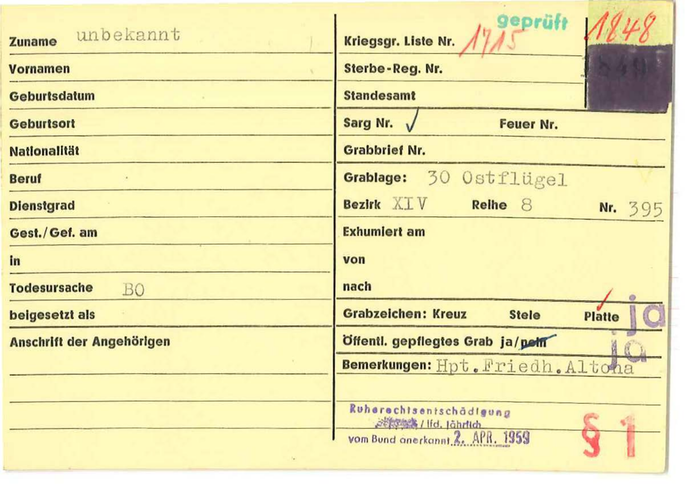 Zuname unbekannt
Vornamen
Geburtsdatum
Geburtsort
Nationalität
Beruf
Dienstgrad
Gest./Gef. am
in
Todesursache BO
beigesetzt als
Anschrift der Angehörigen
geprüft
1848
Kriegsgr. Liste Nr. 1715
Sterbe-Reg. Nr.
Standesamt
Sarg Nr. ✓ Feuer Nr.
Grabbrief Nr.
Grablage: 30 Ostflügel
Bezirk XIV Reihe 8 Nr. 395
Exhumiert am
von
nach
Grabzeichen: Kreuz Stele Platte ja
Öffentl. gepflegtes Grab ja/nein ja
Bemerkungen: Hpt.Friedh.Altona
Ruherechtsentschädigung
/ lfd. jährlich
vom Bund anerkannt 2. APR. 1959
§ 1